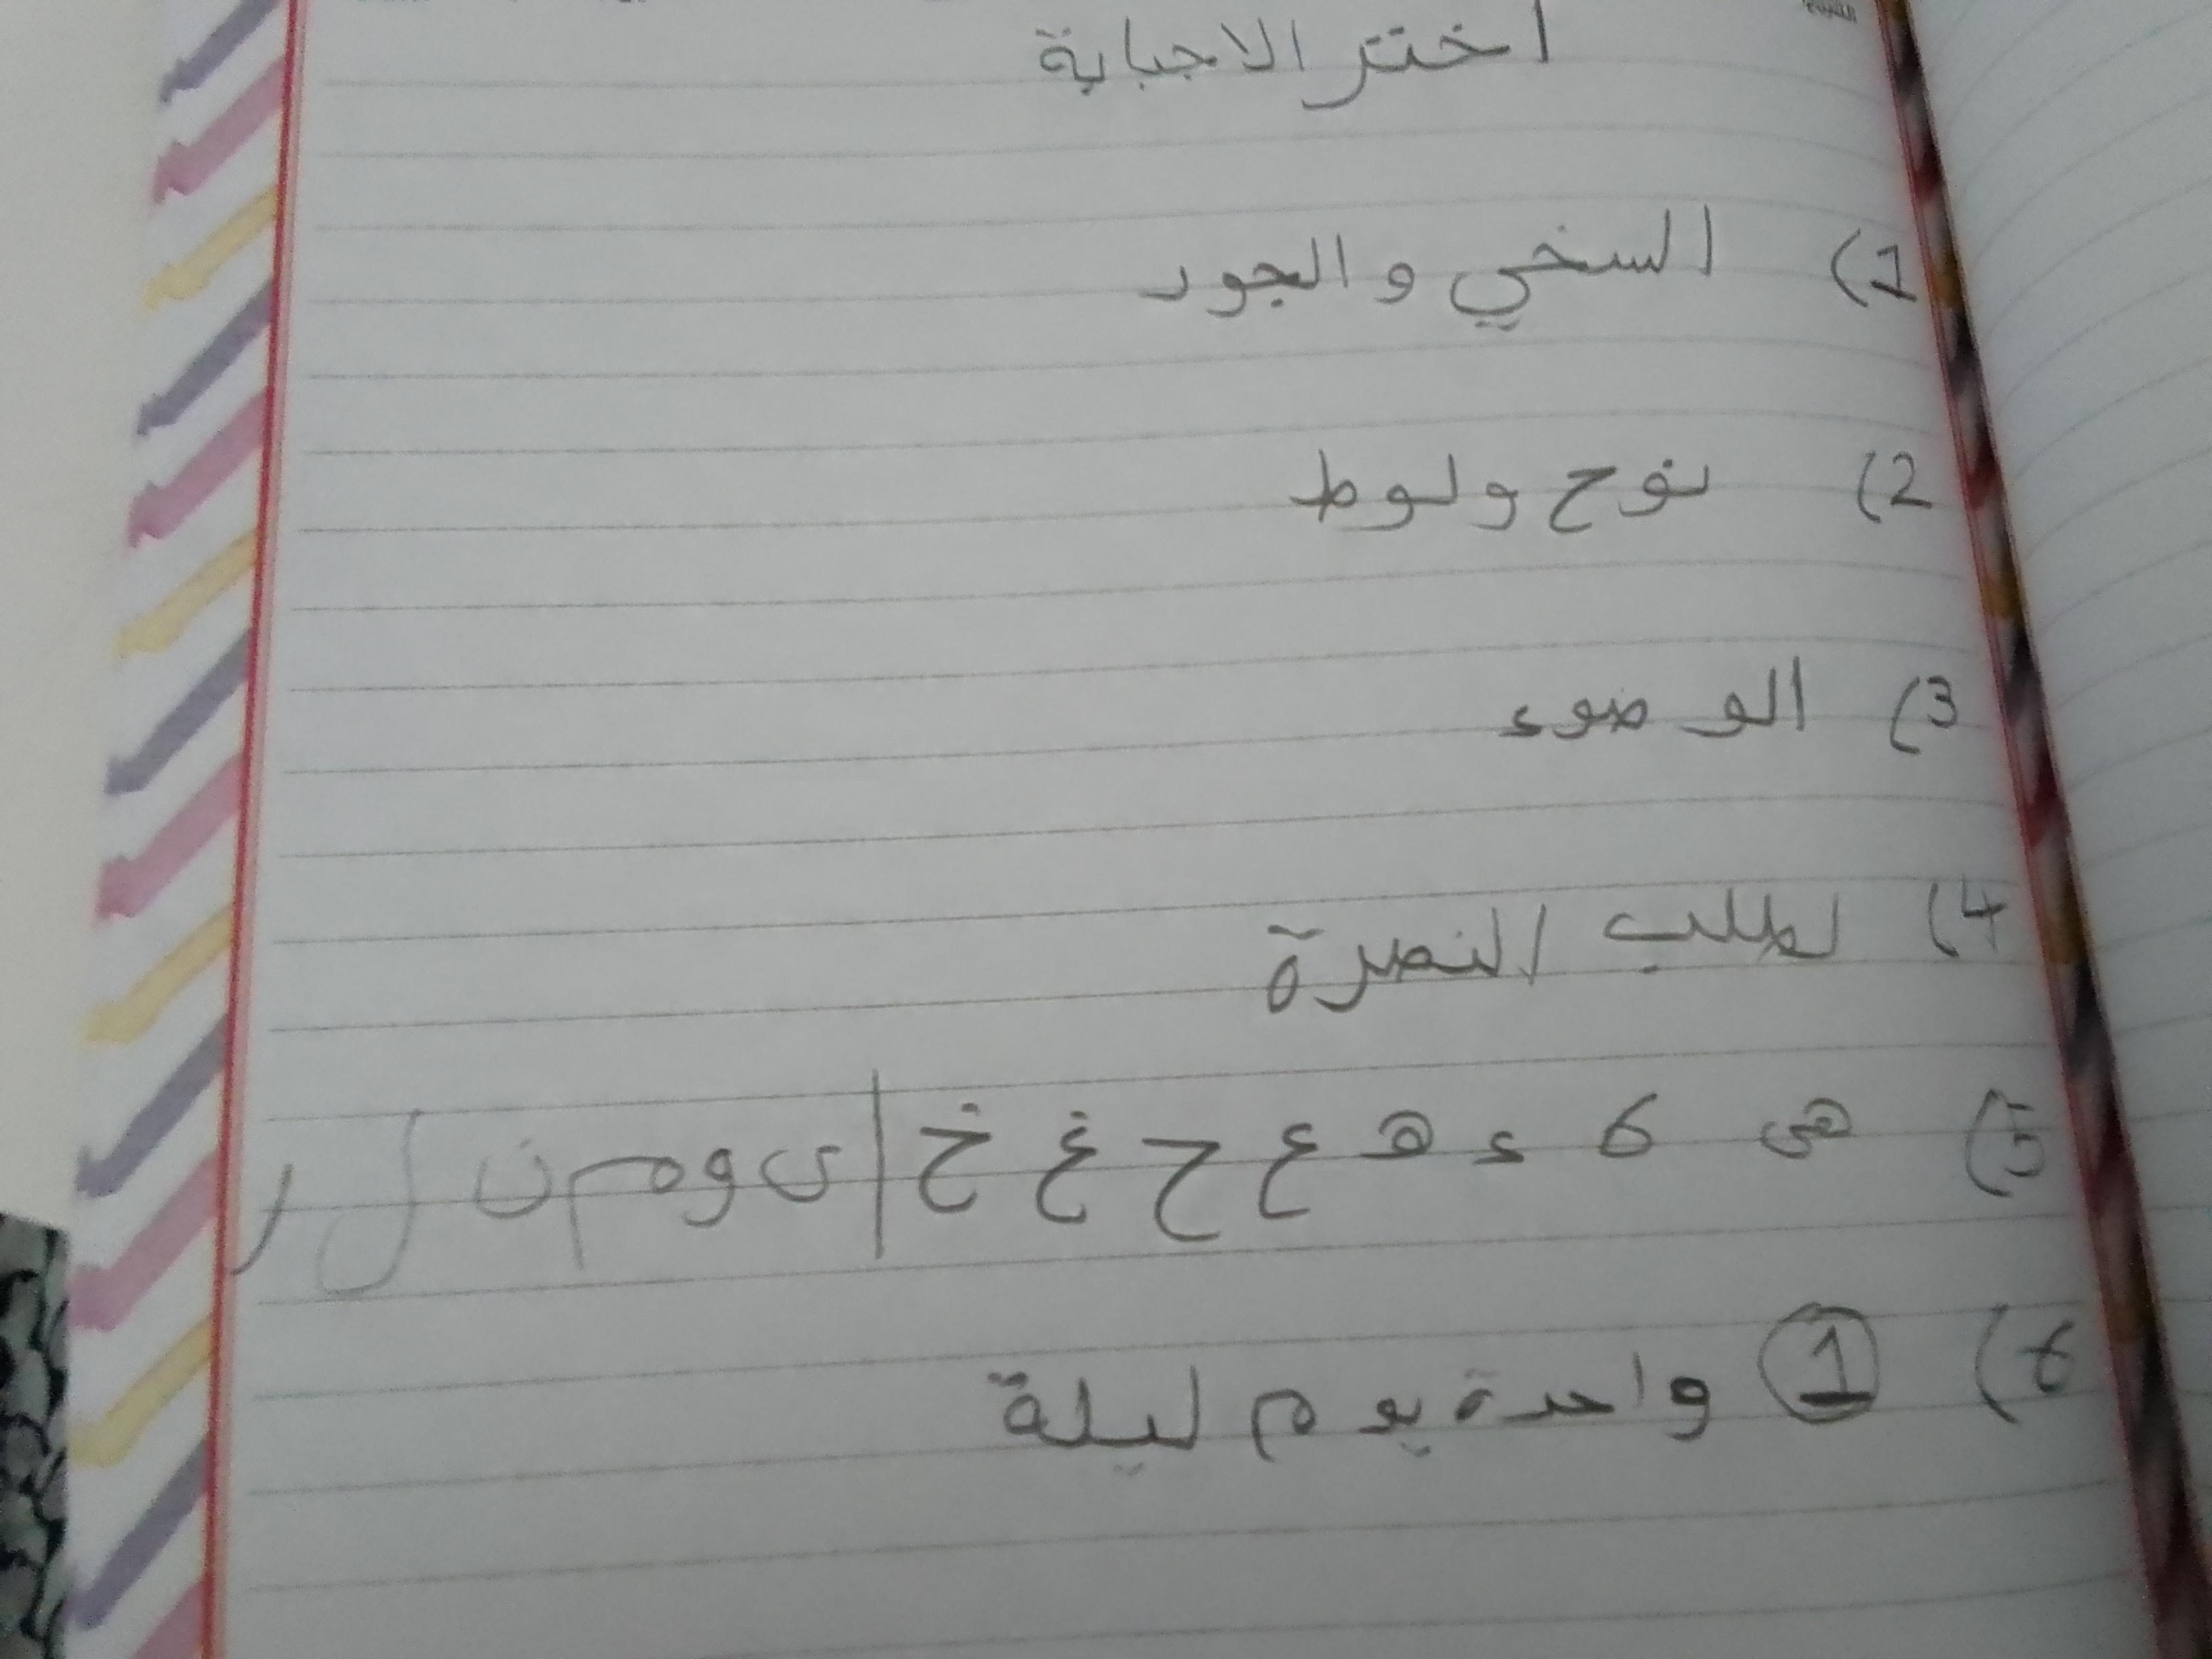 اختر الاجباية
1) السخي والجود
2) نوح ولوط
3) الوضوء
4) لطلب النصرة
5) هى 6 ء ه ع ح غ خ | ى و م ن ل ر
6) 1 واحدة يوم ليلة